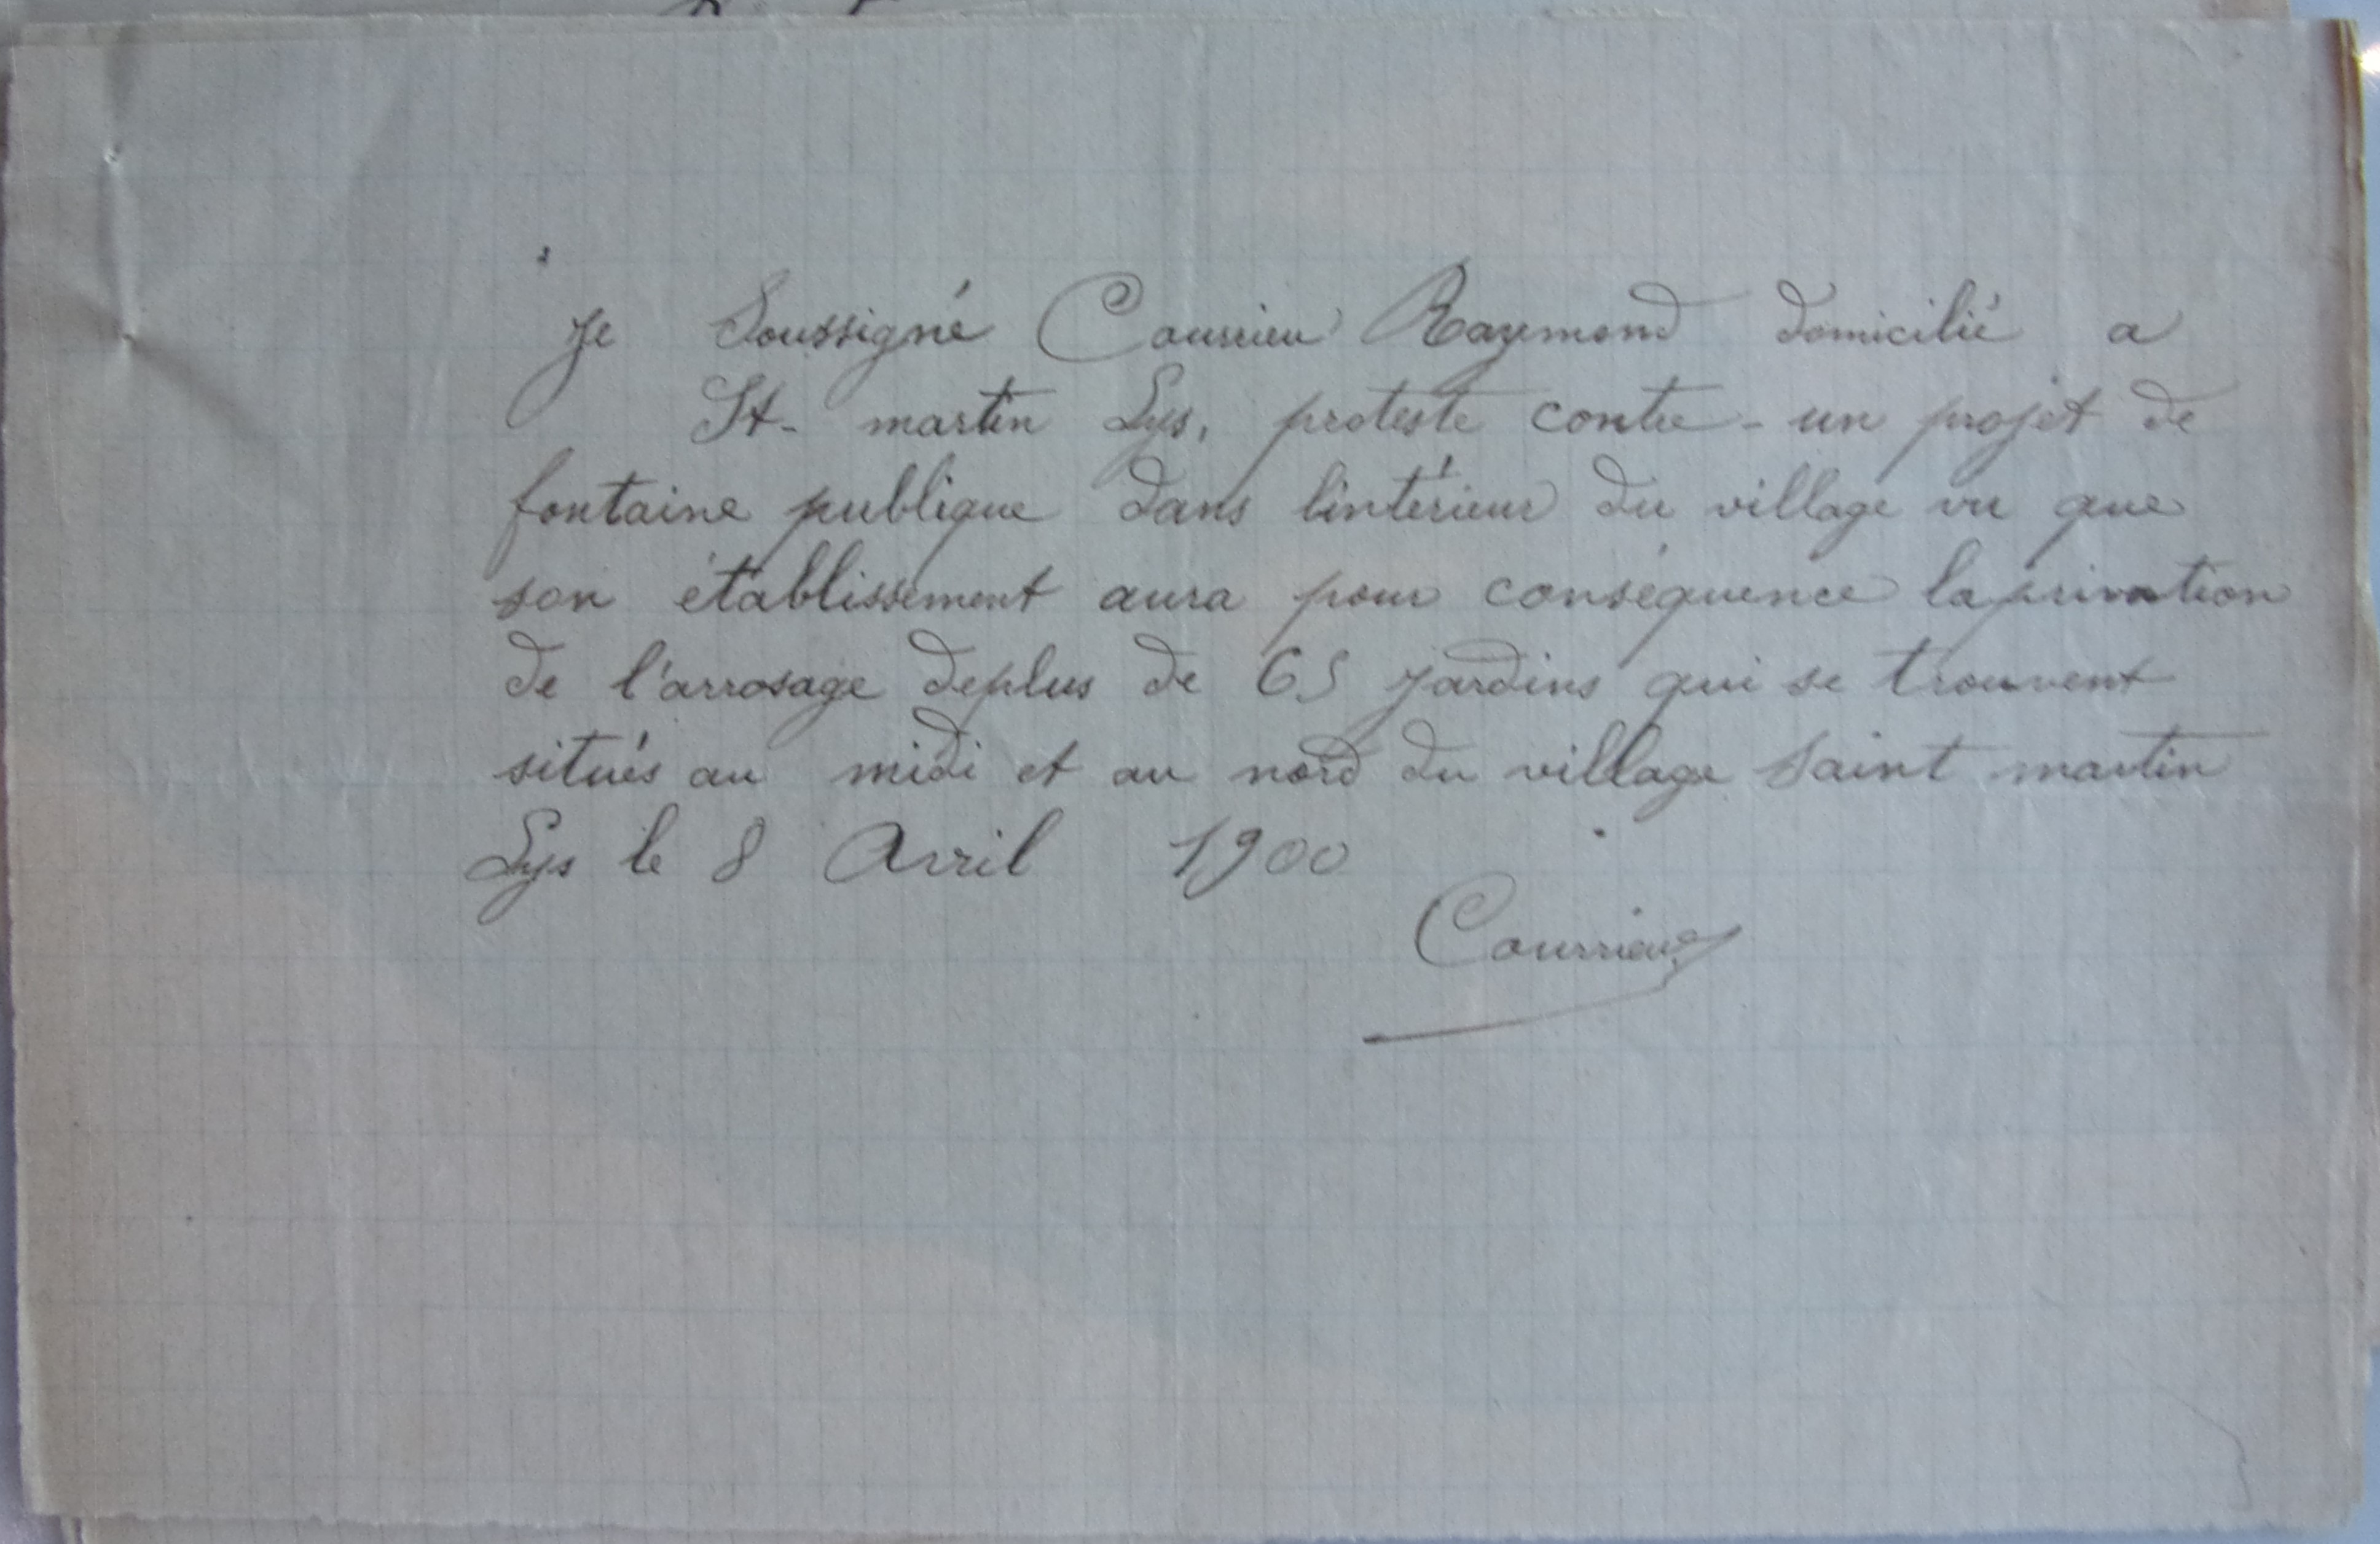 Je Soussigné Courrieu Raymond domicilié a
St- martin Lys, proteste contre - un projet de
fontaine publique dans lintérieur du village vu que
son établissement aura pour conséquence la privation
de l'arrosage deplus de 65 jardins qui se trouvent
situés au midi et au nord du village Saint martin
Lys le 8 Avril 1900
Courrieu